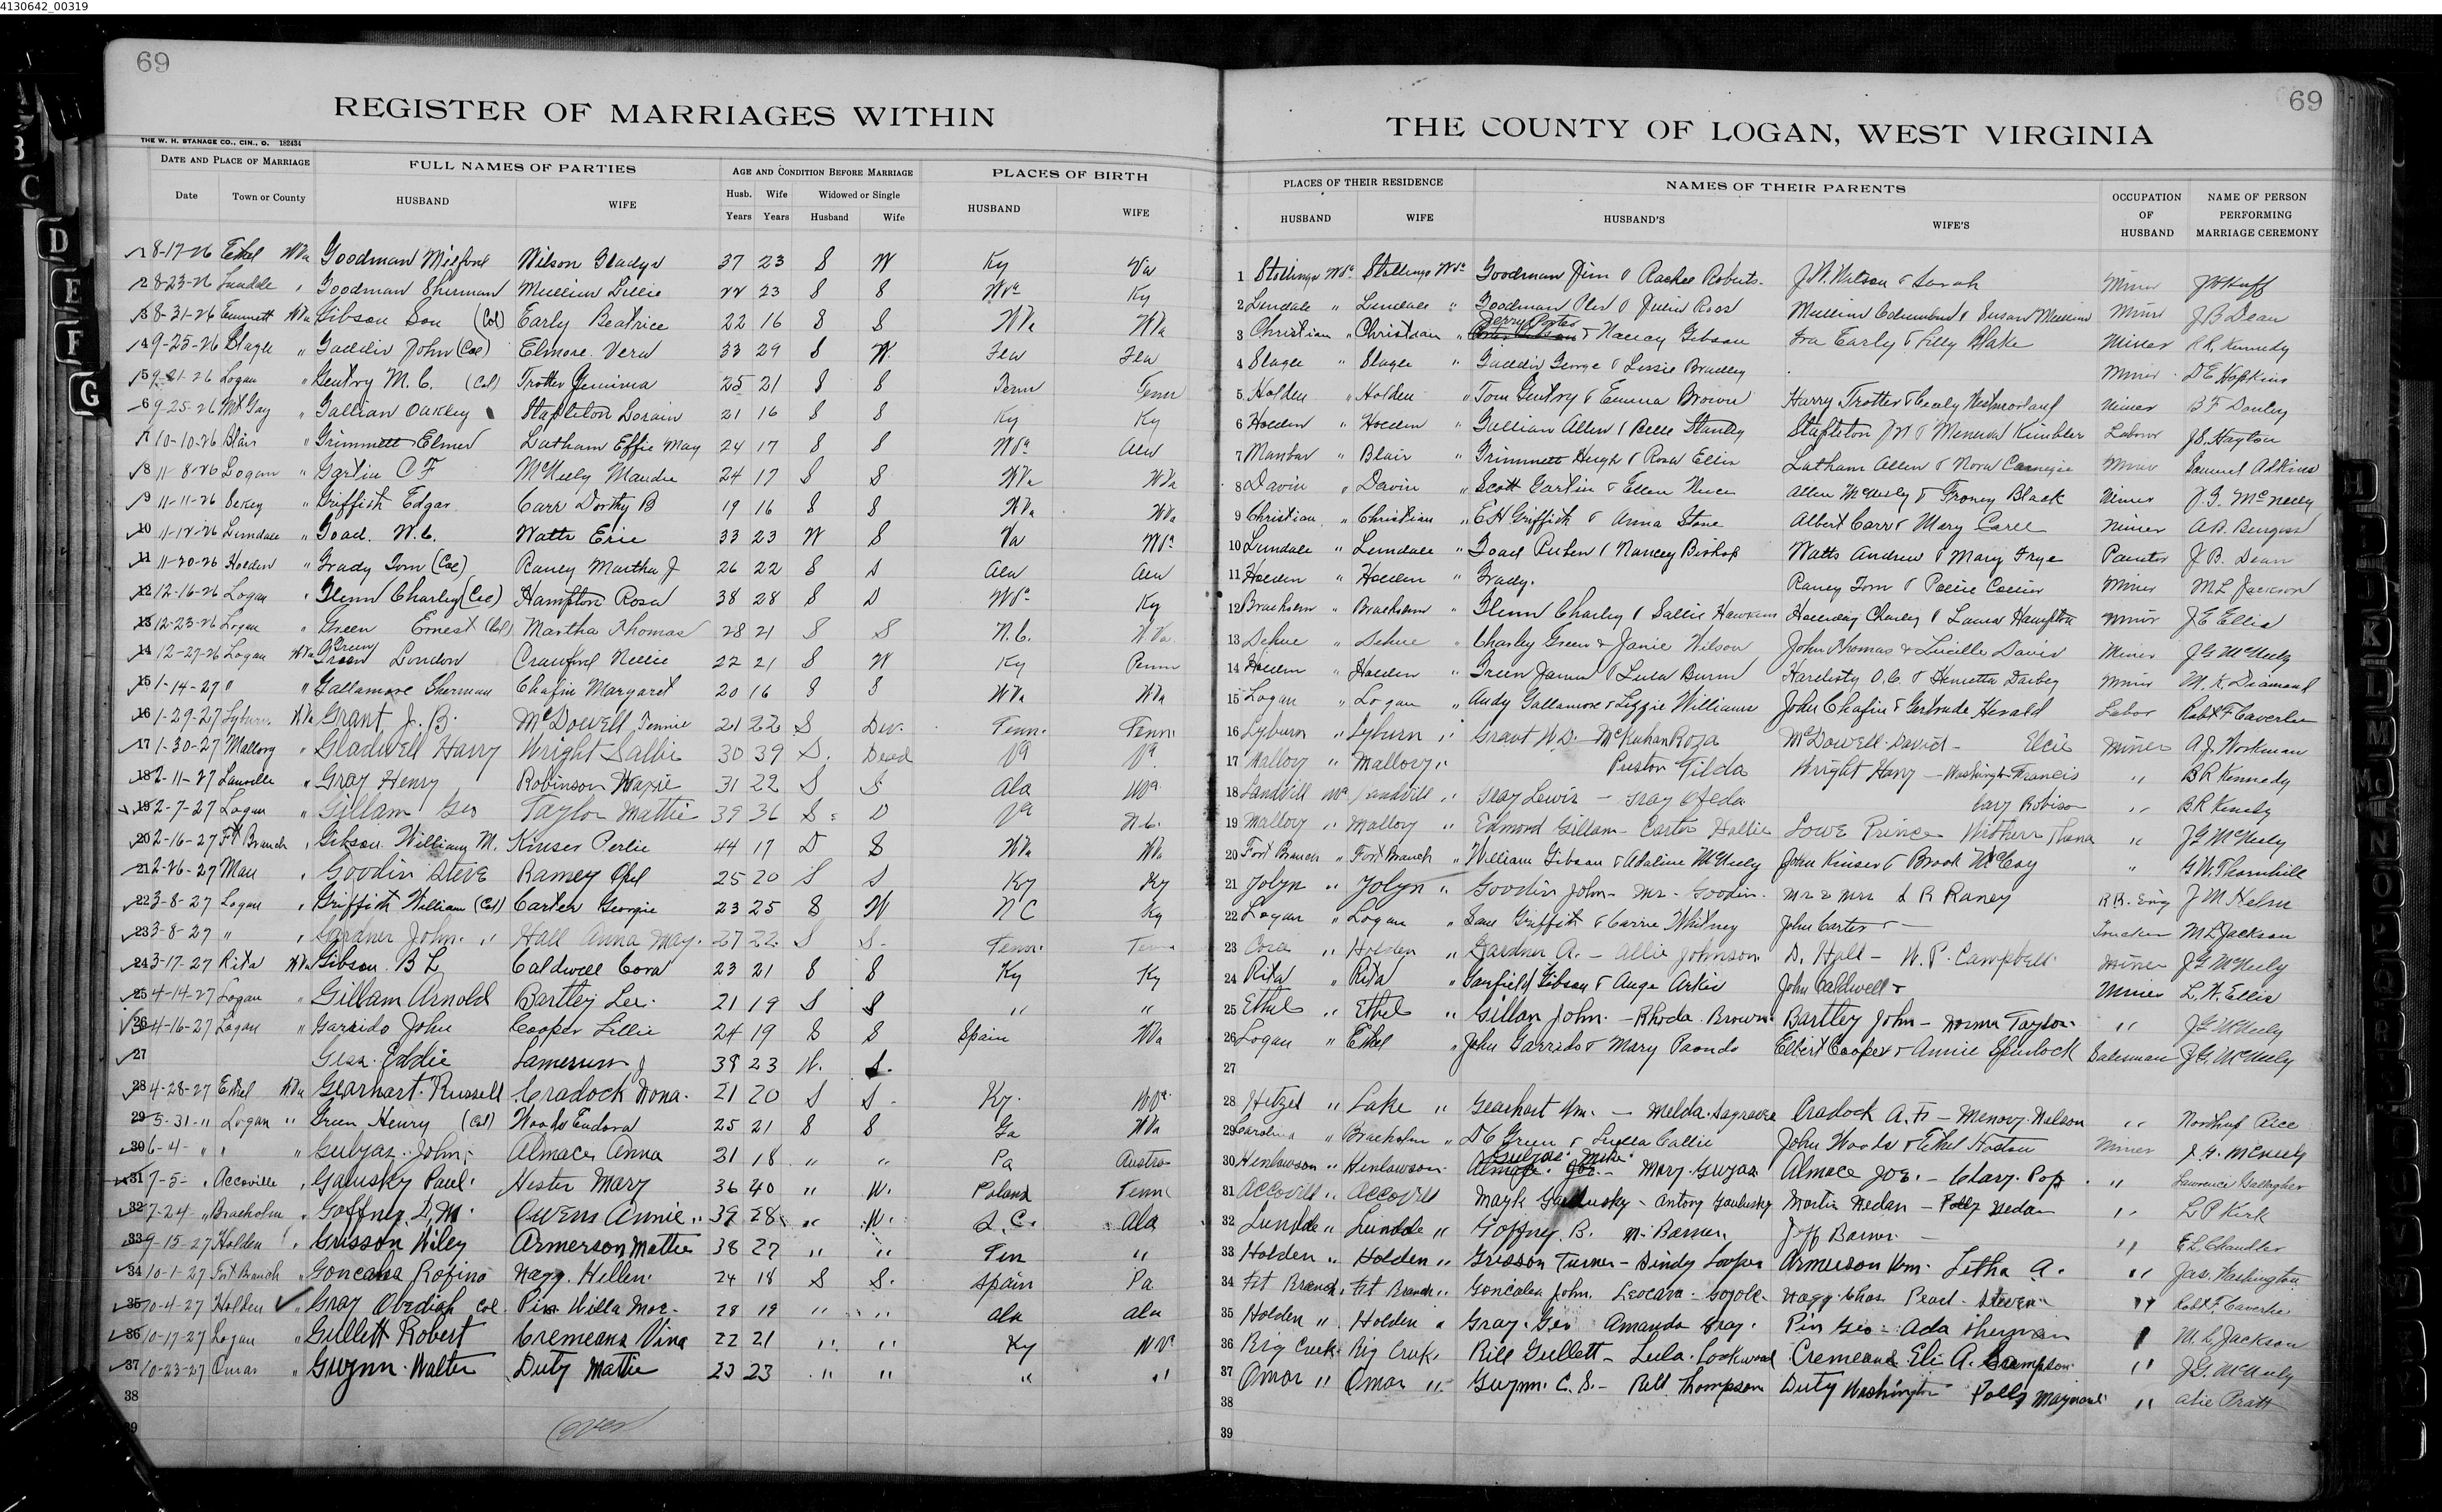 4130642_00319
69
69
REGISTER OF MARRIAGES WITHIN
THE COUNTY OF LOGAN, WEST VIRGINIA
THE W. H. STANAGE CO., CIN., O. 182434
DATE AND PLACE OF MARRIAGE FULL NAMES OF PARTIES AGE AND CONDITION BEFORE MARRIAGE PLACES OF BIRTH
Date Town or County HUSBAND WIFE Husb. Wife Widowed or Single HUSBAND WIFE
Years Years Husband Wife
PLACES OF THEIR RESIDENCE NAMES OF THEIR PARENTS OCCUPATION OF HUSBAND NAME OF PERSON PERFORMING MARRIAGE CEREMONY
HUSBAND WIFE HUSBAND'S WIFE'S
1 8-17-26 Ethel WVa Goodman Milford Wilson Gladys 37 23 S W Ky Va
2 8-23-26 Lundale " Goodman Sherman Mullins Lillie 22 23 S S WVa Ky
3 8-31-26 Emmett WVa Gibson Son (Col) Early Beatrice 22 16 S S WVa WVa
4 9-25-26 Slagle " Gaddis John (Col) Elmore Vera 33 29 S W
5 9-21-26 Logan " Gentry M. C. (Col) Trotter Jemima 25 21 S S Tenn Tenn
6 9-25-26 Mt Gay " Gallian Oakley Stapleton Lorain 21 16 S S Ky Ky
7 10-10-26 Blair " Grimmett Elmer Latham Effie May 24 17 S S WVa Ala
8 11-8-26 Logan " Gartin C F McNeely Maudie 24 17 S S WVa WVa
9 11-11-26 " Griffith Edgar Carr Dorthy B 19 16 S S WVa WVa
10 11-12-26 Lundale " Goad W. C. Watts Erie 33 23 W S Va WVa
11 11-20-26 Holden " Grady Tom (Col) Raney Martha J 26 22 S S Ala Ala
12 12-16-26 Logan " Glenn Charley (Col) Hampton Rosa 38 28 S D WVa Ky
13 12-23-26 Logan " Green Ernest (Col) Martha Thomas 28 21 S S N.C. WVa
14 12-27-26 Logan WVa Green London Crawford Nellie 22 21 S W Ky Penn
15 1-14-27 " " Gallamore Sherman Chafin Margaret 20 16 S S WVa WVa
16 1-29-27 Lyburn WVa Grant J. B. McDowell Tennie 21 22 S Div. Tenn. Tenn.
17 1-30-27 Mallory " Gladwell Harry Wright Sallie 30 39 S. Dead Va Va
18 2-11-27 " Gray Henry Robinson Maxie 31 22 S S Ala WVa
19 2-7-27 Logan " Gillam Geo Taylor Mattie 39 36 S D Va N.C.
20 2-16-27 Ft Branch " Gibson William M. Kinser Perlie 44 17 D S WVa WVa
21 2-26-27 Man " Goodin Steve Ramey Opal 25 20 S S Ky Ky
22 3-8-27 Logan " Griffith William (Col) Carter Georgie 23 25 S W N C Ky
23 3-8-27 " " Gardner John " Hall Anna May. 27 22 S S. Tenn. Tenn
24 3-17-27 Rita WVa Gibson B L Caldwell Cora 23 21 S S Ky Ky
25 4-14-27 Logan " Gillam Arnold Bartley Lee 21 19 S S " "
26 4-16-27 Logan " Garrido John Cooper Lillie 24 19 S S Spain WVa
27 Eddie 39 23 W. S.
28 4-28-27 Ethel WVa Gearhart Russell Cradock Nona 21 20 S S Ky WVa
29 5-31-" Logan " Green Henry (Col) Woods Eudora 25 21 S S Ga WVa
30 6-4-" " " Gulyas John Almace Anna 21 18 " " Pa Austria
31 7-5-" Accoville " Galusky Paul Hester Mary 36 40 " W. Poland Tenn
32 7-24-" Braeholm " Goffney D. M. Owens Annie 39 28 " W. S.C. Ala
33 9-15-27 Holden " Grisson Wiley Armerson Mattie 38 27 " " Ten "
34 10-1-27 Fort Branch " Goncalez Rofino Nagy Hellen 24 18 S S. Spain Pa
35 10-4-27 Holden " Gray Obediah Col. Pin Willa Mae 28 19 " " Ala Ala
36 10-17-27 Logan " Gullett Robert Cremeans Vina 22 21 " " Ky WVa
37 10-23-27 Omar " Gwynn Walter Duty Mattie 23 23 " " " "
38
39
(over)
1 Stollings WVa Stollings WVa Goodman Jim & Rachel Roberts J.W. Wilson & Sarah Miner
2 Lundale " Lundale " Goodman & Julia Ross Mullins Columbus & Susan Mullins Miner J B Dean
Jerry Porter
3 Christian " Christian " & Nancy Gibson Ira Early & Lilly Blake Miner R R. Kennedy
4 Slagle " Slagle " Gaddis George & Lessie Bradley Miner D E Hopkins
5 Holden " Holden " Tom Gentry & Emma Brown Harry Trotter & Cealy Westmorland Miner B F Donley
6 Holden " Holden " Gallian Allen & Belle Stanley Stapleton J W & Minerva Kimbler Labor J S. Hayton
7 Manbar " Blair " Grimmett Hugh & Rosa Ellis Latham Allen & Nora Carnegie Miner Samuel Adkins
8 Davin " Davin " Scott Gartin & Ellen Allen McNeely & Froney Black Miner J. G. McNeely
9 Christian " Christian " E H Griffith & Anna Stone Albert Carr & Mary Carll Miner A. D. Burgess
10 Lundale " Lundale " Goad Ruben & Nancy Bishop Watts Andrew & Mary Frye Painter J B. Dean
11 Holden " Holden " Grady. Raney Tom & Miner M L Jackson
12 Braeholm " Braeholm " Glenn Charley & Sallie Hawkins Holliday Charley & Laura Hampton Miner J E Ellis
13 Dehue " Dehue " Charley Green & Janie Wilson John Thomas & Lucille Davis Miner J G McNeely
14 Holden " Holden " Green James & Lula Burns Hardisty O. C. & Henrietta Darbey Miner M. K. Diamond
15 Logan " Logan " Andy Gallamore & Lizzie Williams John Chafin & Gertrude Herald Labor Robt F Caverlee
16 Lyburn " Lyburn " Grant W D - McKuhan Roza McDowell David - Elcie Miner A. J. Workman
17 Mallory " Mallory " Preston Gilda Wright Harry - Washington Francis " B R Kennedy
18 Landvill WVa Landvill " Gray Lewis - Gray Ofeda Cary Robison " B. R Kenedy
19 Mallory " Mallory " Edmond Gillam - Carter Hallie Lowe Prince " J G McNeely
20 Fort Branch " Fort Branch " William Gibson & Adaline McNeely John Kinser & Brook McCoy " G. W. Thornhill
21 Yolyn " Yolyn " Goodin John - Mr. Goodin Mr & Mrs L R Raney R.R. Eng J M Helm
22 Logan " Logan " Sam Griffith & Carrie Whitney John Carter & - Trucker M L Jackson
23 Cora " Holden " Gardner A. - Allie Johnson D. Hall - W. P. Campbell Miner J G McNeely
24 Rita " Rita " Garfield Gibson & Ange Artis John Caldwell & Miner L. W. Ellis
25 Ethel " Ethel " Gillam John - Rhoda Brown Bartley John - Norma Taylor " J G McNeely
26 Logan " Ethel " John Garrido & Mary Pando Elbert Cooper & Annie Spurlock Salesman J. G. McNeely
27
28 Hetzel " Lake " Gearhart Wm. - Melda Sagraves Cradock A. F. - Menovy Nelson " Northup Rice
29 Carolina " Braeholm " D C Green & Luella Callie John Woods & Ethel Hodson Miner J. G. McNeely
Gulyas Mike
30 Henlawson " Henlawson - Mary Guyas Almace Joe - Clary Pop " Lawrence Gallagher
31 Accovill " Accovill Mayk Galusky - Antony Gaulusky Martin Nedan - Polly Nedan " L P Kirk
32 Lundale " Lundale " Goffney B. M. Barner Jeff Barner - " E L Chandler
33 Holden " Holden " Grisson Turner - Sindy Looper Armerson Wm. Letha A. " Jas. Washington
34 Frt Branch " Frt Branch " Goncalez John Leocara Nagy Chas Pearl Steven " Robt F. Caverlee
35 Holden " Holden " Gray Geo Amanda Gray Pin Geo - Ada Sherman " M. L Jackson
36 Big Creek Big Creek Bill Gullett - Lula Lockwood Cremeans Eli A. Crampson " J G. McNeely
37 Omar " Omar " Gwynn C. S. - Bell Thompson Duty Washington Polly Maynard " Alie Pratt
38
39